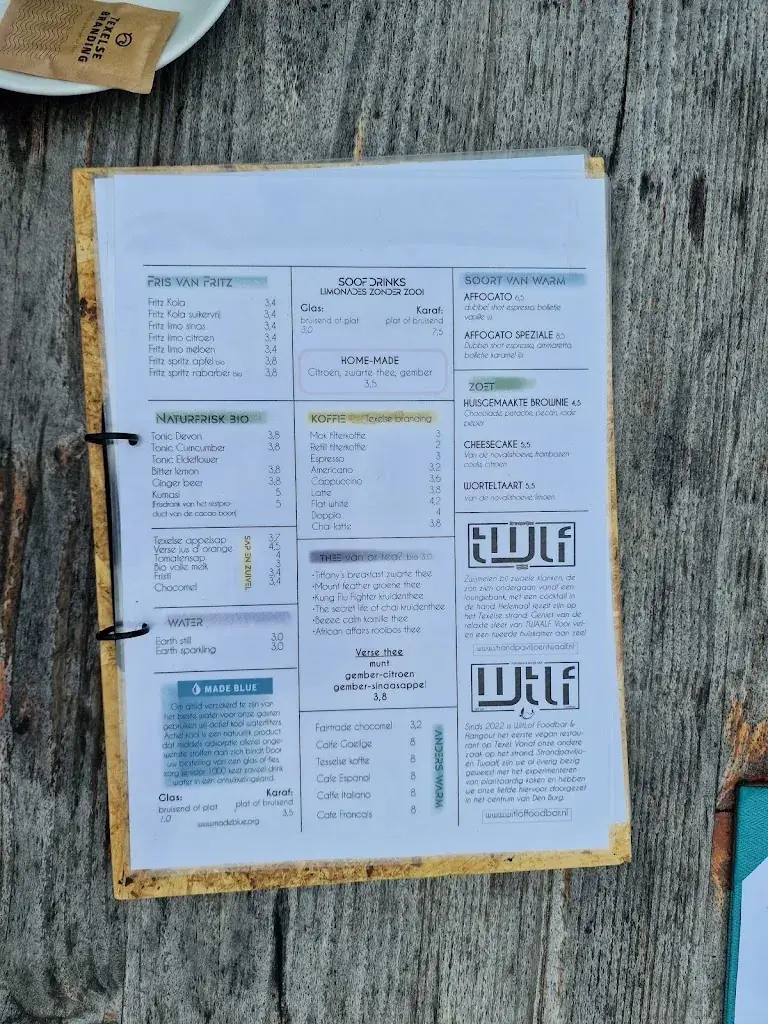 TEXELSE
BRANDING
FRIS VAN FRITZ
Fritz Kola 3,4
Fritz Kola suikervrij 3,4
Fritz limo sinas 3,4
Fritz limo citroen 3,4
Fritz limo meloen 3,4
Fritz spritz apfel bio 3,8
Fritz spritz rabarber bio 3,8
NATURFRISK BIO
Tonic Devon 3,8
Tonic Cumcumber 3,8
Tonic Eldeflower
Bitter lemon 3,8
Ginger beer 3,8
Kumasi 5
(frisdrank van het restpro- 5
duct van de cacao boon)
Texelse appelsap 3,7
Verse jus d' orange 4,5
Tomatensap 4
Bio volle melk 3
Fristi 3,4
Chocomel 3,4
SAP EN ZUIVEL
WATER
Earth still 3,0
Earth sparkling 3,0
MADE BLUE
Om altijd verzekerd te zijn van
het beste water voor onze gasten
gebruiken wij actief kool waterfilters.
Actief kool is een natuurlijk product
dat middels adsorptie allerlei onge-
wenste stoffen aan zich bindt. Door
uw bestelling van een glas of fles
zorg je voor 1.000 keer zoveel drink
water in een ontwikkelingsland.
Glas: Karaf:
bruisend of plat plat of bruisend
1,0 3,5
www.madeblue.org
SOOF DRINKS
LIMONADES ZONDER ZOOI
Glas: Karaf:
bruisend of plat plat of bruisend
3,0 7,5
HOME-MADE
Citroen, zwarte thee, gember
3,5
KOFFIE Texelse branding
Mok filterkoffie 3
Refill filterkoffie 2
Espresso 3
Americano 3,2
Cappuccino 3,6
Latte 3,8
Flat white 4,2
Doppio 4
Chai latte 3,8
THEE van or tea? bio 3,0
•Tiffany's breakfast zwarte thee
•Mount feather groene thee
•Kung Flu Fighter kruidenthee
•The secret life of chai kruidenthee
•Beeee calm kamille thee
•African affairs rooibos thee
Verse thee
munt
gember-citroen
gember-sinaasappel
3,8
Fairtrade chocomel 3,2
Caife Gaeilge 8
Tesselse koffie 8
Cafe Espanol 8
Caffe Italiano 8
Cafe Francais 8
ANDERS WARM
SOORT VAN WARM
AFFOGATO 6,5
dubbel shot espresso, bolletje
vanille ijs
AFFOGATO SPEZIALE 8,5
Dubbel shot espresso, amaretto,
bolletje karamel ijs
ZOET
HUISGEMAAKTE BROWNIE 4,5
Chocolade, pistache, pecan, roze
peper
CHEESECAKE 5,5
Van de novalishoeve, frambozen
coulis, citroen
WORTELTAART 5,5
Van de novalishoeve, limoen
tWJLf
Zwijmelen bij zwoele klanken, de
zon zien ondergaan vanaf een
loungebank, met een cocktail in
de hand. Helemaal jezelf zijn op
het Texelse strand. Geniet van de
relaxte sfeer van TWAALF. Voor vel-
en een tweede huiskamer aan zee!
www.strandpaviljoentwaalf.nl
WtLf
Sinds 2022 is Witlof Foodbar &
Hangout het eerste vegan restau-
rant op Texel. Vanuit onze andere
zaak op het strand, Strandpaviljo-
en Twaalf, zijn we al overig bezig
geweest met het experimenteren
van plantaardig koken en hebben
we onze liefde hiervoor doorgezet
in het centrum van Den Burg.
www.witloffoodbar.nl